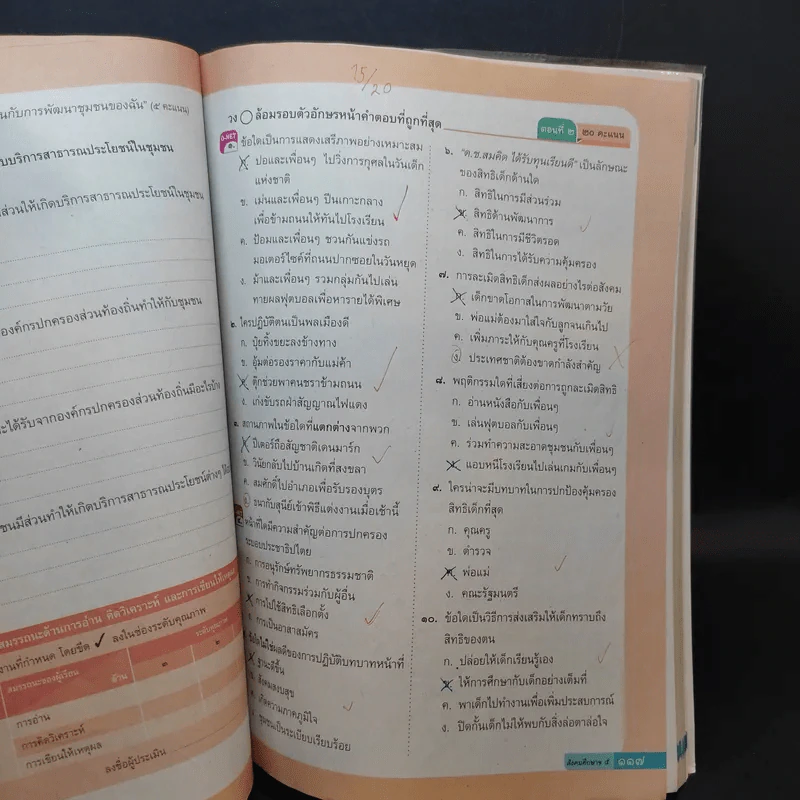 นกับการพัฒนาชุมชนของฉัน" (๕ คะแนน)
บบริการสาธารณประโยชน์ในชุมชน
ส่วนให้เกิดบริการสาธารณประโยชน์ในชุมชน
องค์กรปกครองส่วนท้องถิ่นทำให้กับชุมชน
ะได้รับจากองค์กรปกครองส่วนท้องถิ่นมีอะไรบ้าง
ชนมีส่วนทำให้เกิดบริการสาธารณประโยชน์ต่างๆ
สมรรถนะด้านการอ่าน คิดวิเคราะห์ และการเขียน
งานที่กำหนด โดยขีด ✓ ลงในช่องระดับคุณภาพ
สมรรถนะของผู้เรียน
ด้าน
ระดับคุณภาพ
๑
๒
การอ่าน
การคิดวิเคราะห์
การเขียนให้เหตุผล
ลงชื่อผู้ประเมิน
15/20
วง ◯ ล้อมรอบตัวอักษรหน้าคำตอบที่ถูกที่สุด
ตอนที่ ๒
๒๐ คะแนน
O-NET
๑. ข้อใดเป็นการแสดงเสรีภาพอย่างเหมาะสม
ปอและเพื่อนๆ ไปวิ่งการกุศลในวันเด็ก
แห่งชาติ
ข. เม่นและเพื่อนๆ ปีนเกาะกลาง
เพื่อข้ามถนนให้ทันไปโรงเรียน
ค. ป้อมและเพื่อนๆ ชวนกันแข่งรถ
มอเตอร์ไซค์ที่ถนนปากซอยในวันหยุด
ง. ม้าและเพื่อนๆ รวมกลุ่มกันไปเล่น
ทายผลฟุตบอลเพื่อหารายได้พิเศษ
๒. ใครปฏิบัติตนเป็นพลเมืองดี
ก. ปุ้ยทิ้งขยะลงข้างทาง
ข. อุ้มต่อรองราคากับแม่ค้า
ตุ๊กช่วยพาคนชราข้ามถนน
ง. เก่งขับรถฝ่าสัญญาณไฟแดง
๓. สถานภาพในข้อใดที่แตกต่างจากพวก
ปีเตอร์ถือสัญชาติเดนมาร์ก
ข. วินัยกลับไปบ้านเกิดที่สงขลา
ค. สมศักดิ์ไปอำเภอเพื่อรับรองบุตร
ง. ธนากับสุนีย์เข้าพิธีแต่งงานเมื่อเช้านี้
หน้าที่ใดมีความสำคัญต่อการปกครอง
ระบอบประชาธิปไตย
ก. การอนุรักษ์ทรัพยากรธรรมชาติ
ข. การทำกิจกรรมร่วมกับผู้อื่น
การไปใช้สิทธิเลือกตั้ง
ง. การเป็นอาสาสมัคร
ข้อใดไม่ใช่ผลดีของการปฏิบัติบทบาทหน้าที่
ฐานะดีขึ้น
สังคมสงบสุข
เกิดความภาคภูมิใจ
ชุมชนเป็นระเบียบเรียบร้อย
๖. "ด.ช.สมคิด ได้รับทุนเรียนดี" เป็นลักษณะ
ของสิทธิเด็กด้านใด
ก. สิทธิในการมีส่วนร่วม
สิทธิด้านพัฒนาการ
ค. สิทธิในการมีชีวิตรอด
ง. สิทธิในการได้รับความคุ้มครอง
๗. การละเมิดสิทธิเด็กส่งผลอย่างไรต่อสังคม
เด็กขาดโอกาสในการพัฒนาตามวัย
ข. พ่อแม่ต้องมาใส่ใจกับลูกจนเกินไป
ค. เพิ่มภาระให้กับคุณครูที่โรงเรียน
ง. ประเทศชาติต้องขาดกำลังสำคัญ
๘. พฤติกรรมใดที่เสี่ยงต่อการถูกละเมิดสิทธิ
ก. อ่านหนังสือกับเพื่อนๆ
ข. เล่นฟุตบอลกับเพื่อนๆ
ค. ร่วมทำความสะอาดชุมชนกับเพื่อนๆ
แอบหนีโรงเรียนไปเล่นเกมกับเพื่อนๆ
๙. ใครน่าจะมีบทบาทในการปกป้องคุ้มครอง
สิทธิเด็กที่สุด
ก. คุณครู
ข. ตำรวจ
พ่อแม่
ง. คณะรัฐมนตรี
๑๐. ข้อใดเป็นวิธีการส่งเสริมให้เด็กทราบถึง
สิทธิของตน
ก. ปล่อยให้เด็กเรียนรู้เอง
ให้การศึกษากับเด็กอย่างเต็มที่
ค. พาเด็กไปทำงานเพื่อเพิ่มประสบการณ์
ง. ปิดกั้นเด็กไม่ให้พบกับสิ่งล่อตาล่อใจ
สังคมศึกษาฯ ๕
๑๑๗